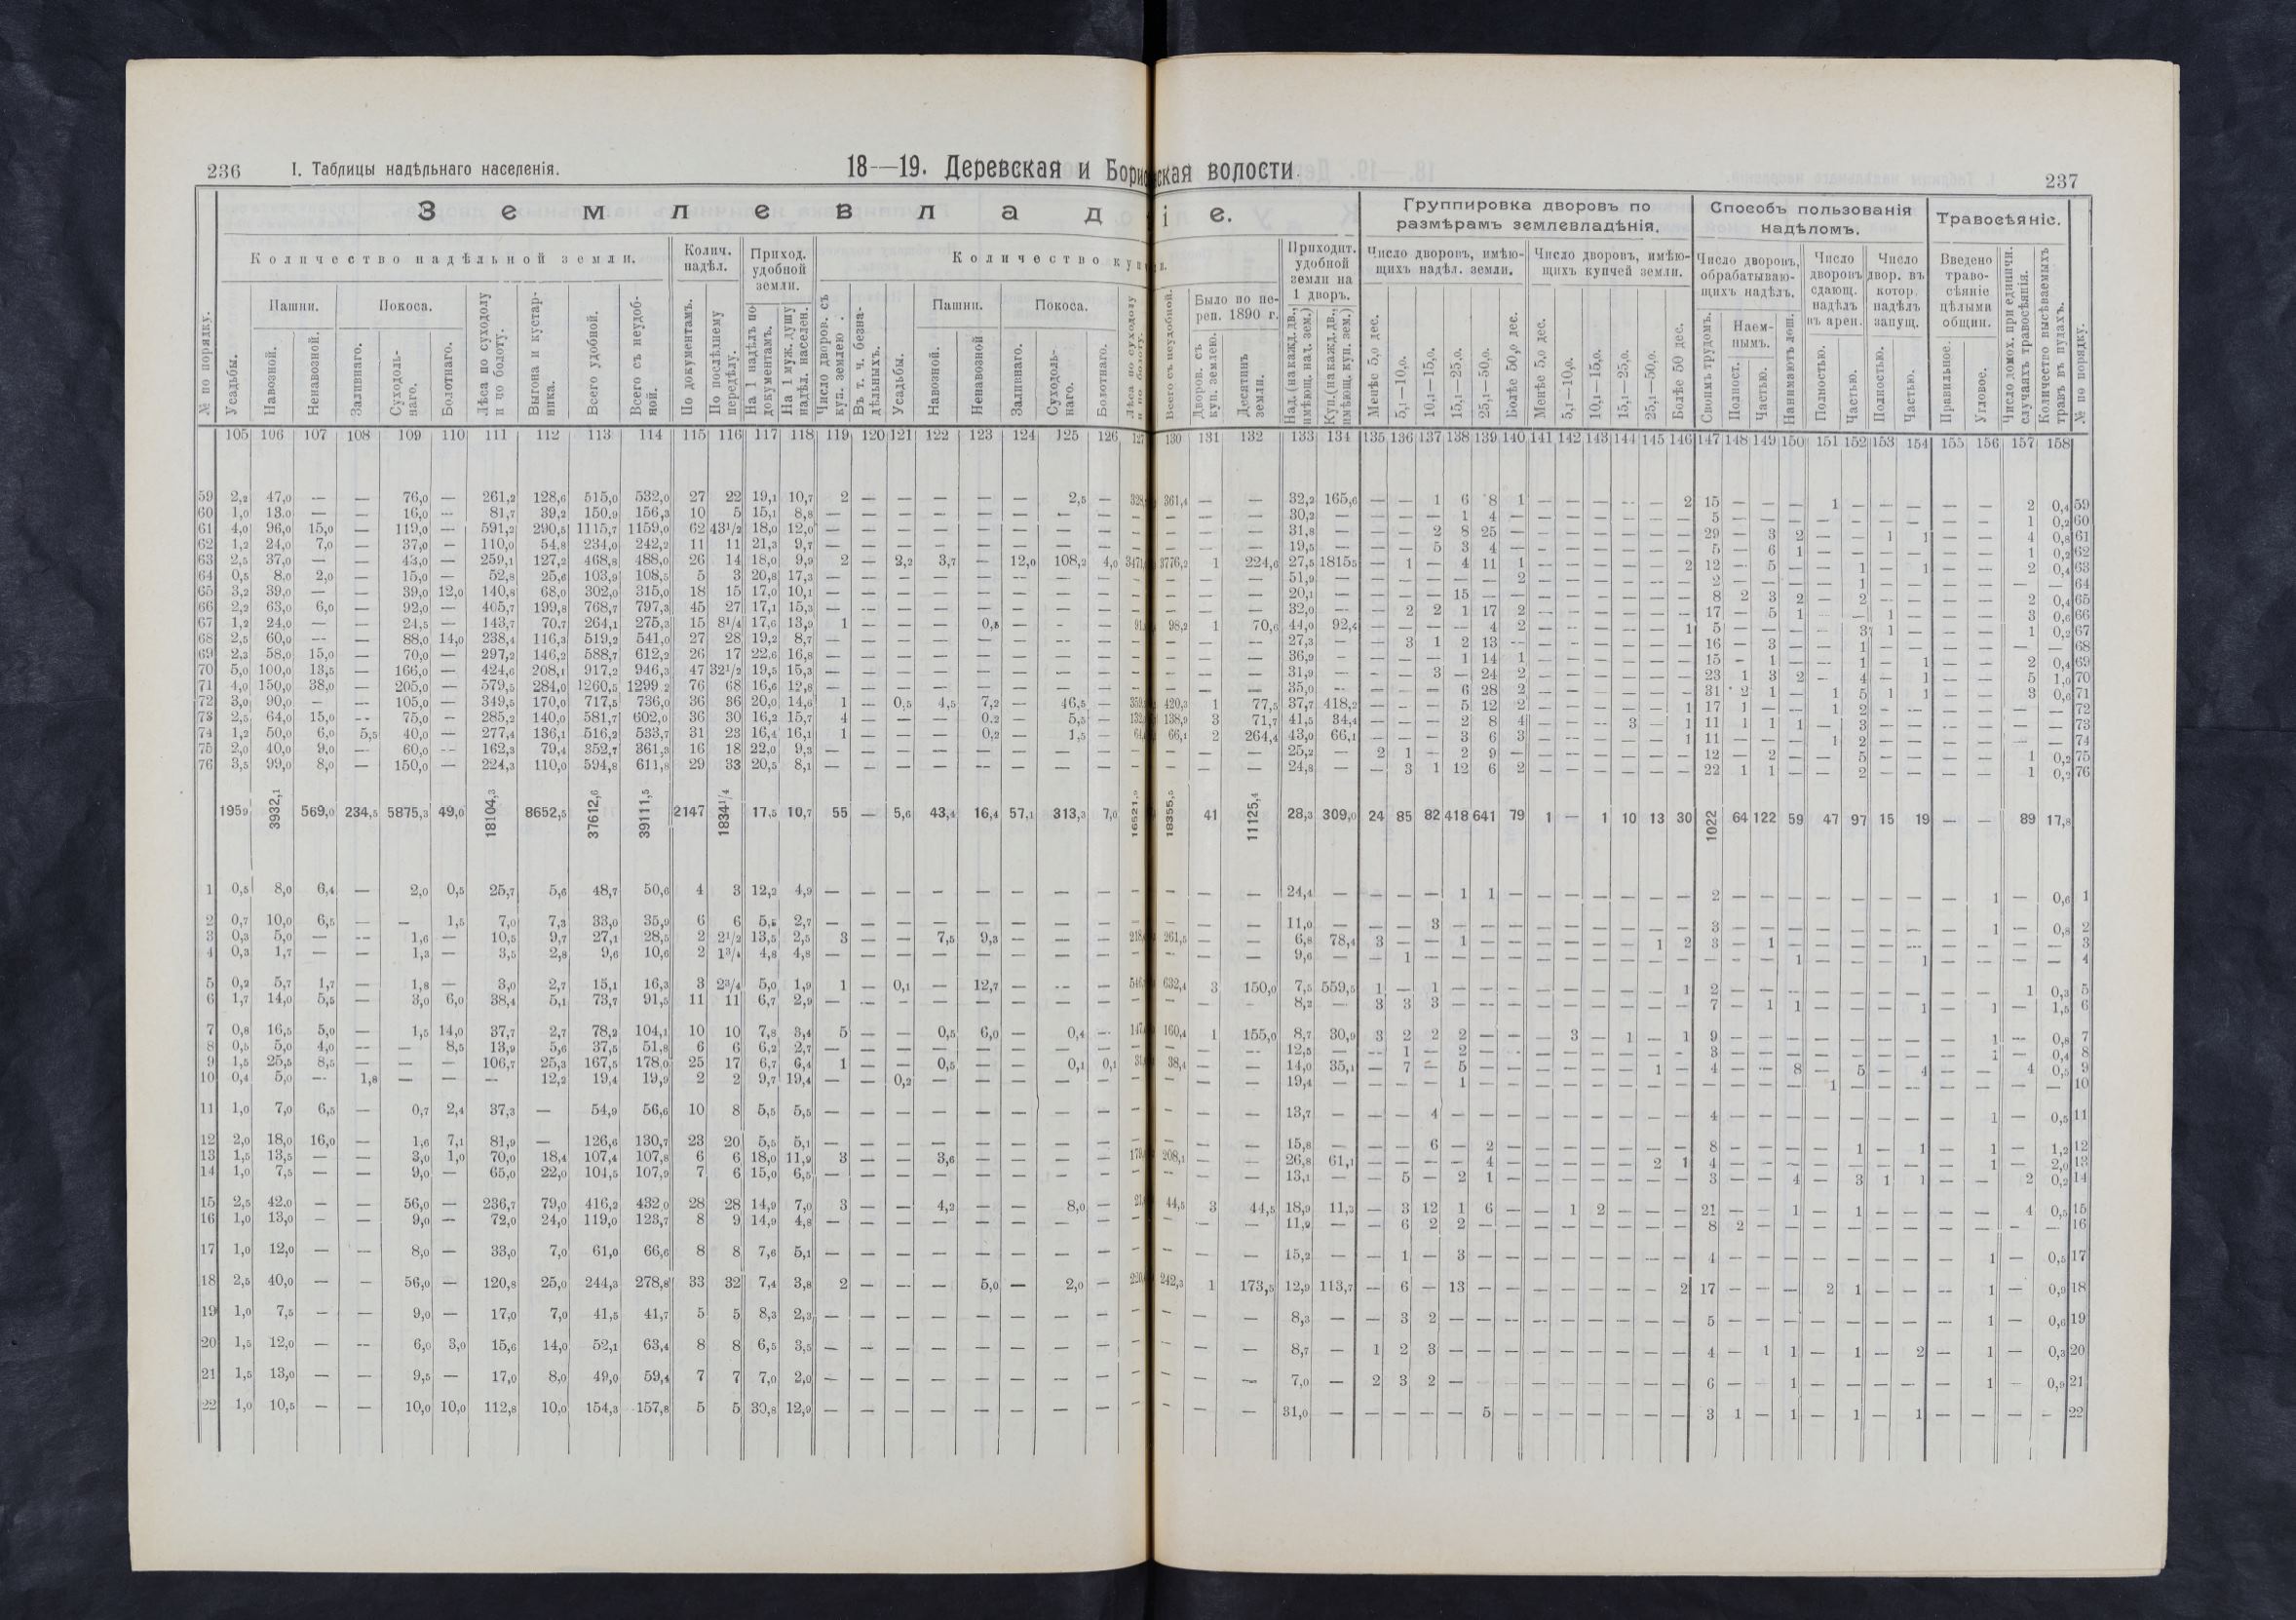 236 I. Таблицы надѣльнаго населенія.
18—19. Деревская и Борис
З е м л е в л а д
№ по порядку.
Количество надѣльной земли.
Колич. надѣл.
Приход. удобной земли.
Количество куп
Усадьбы.
Пашни.
Навозной.
Ненавозной.
Покоса.
Заливнаго.
Суходоль-
наго.
Болотнаго.
Лѣса по суходолу
и по болоту.
Выгона и кустар-
ника.
Всего удобной.
Всего съ неудоб-
ной.
По документамъ.
По послѣднему
передѣлу.
На 1 надѣлъ по
документамъ.
На 1 муж. душу
надѣл. населен.
Число дворов. съ
куп. землею.
Въ т. ч. безна-
дѣльныхъ.
Усадьбы.
Пашни.
Навозной.
Ненавозной
Покоса.
Заливнаго.
Суходоль-
наго.
Болотнаго.
Лѣса по суходолу
и по болоту.
105 106 107 108 109 110 111 112 113 114 115 116 117 118 119 120 121 122 123 124 125 126 127
59 2,2 47,0 — — 76,0 — 261,2 128,6 515,0 532,0 27 22 19,1 10,7 2 — — — — — 2,5 —
60 1,0 13,0 — — 16,0 — 81,7 39,2 150,9 156,3 10 5 15,1 8,8 — — — — — — — —
61 4,0 96,0 15,0 — 119,0 — 591,2 290,5 1115,7 1159,0 62 43½ 18,0 12,0 — — — — — — — —
62 1,2 24,0 7,0 — 37,0 — 110,0 54,8 234,0 242,2 11 11 21,3 9,7 — — — — — — — —
63 2,5 37,0 — — 43,0 — 259,1 127,2 468,8 488,0 26 14 18,0 9,9 2 — 2,2 3,7 — 12,0 108,2 4,0
64 0,5 8,0 2,0 — 15,0 — 52,8 25,6 103,9 108,5 5 3 20,8 17,3 — — — — — — — —
65 3,2 39,0 — — 39,0 12,0 140,8 68,0 302,0 315,0 18 15 17,0 10,1 — — — — — — — —
66 2,2 63,0 6,0 — 92,0 — 405,7 199,8 768,7 797,3 45 27 17,1 15,3 — — — — — — — —
67 1,2 24,0 — — 24,5 — 143,7 70,7 264,1 275,3 15 8¼ 17,6 13,9 1 — — — 0,5 — — —
68 2,5 60,0 — — 88,0 14,0 238,4 116,3 519,2 541,0 27 28 19,2 8,7 — — — — — — — —
69 2,3 58,0 15,0 — 70,0 — 297,2 146,2 588,7 612,2 26 17 22,6 16,8 — — — — — — — —
70 5,0 100,0 13,5 — 166,0 — 424,6 208,1 917,2 946,3 47 32½ 19,5 15,3 — — — — — — — —
71 4,0 150,0 38,0 — 205,0 — 579,5 284,0 1260,5 1299,2 76 68 16,6 12,8 — — — — — — — —
72 3,0 90,0 — — 105,0 — 349,5 170,0 717,5 736,0 36 36 20,0 14,6 1 — 0,5 4,5 7,2 — 46,5 —
73 2,5 64,0 15,0 — 75,0 — 285,2 140,0 581,7 602,0 36 30 16,2 15,7 4 — — — 0,2 — 5,5 —
74 1,2 50,0 6,0 5,5 40,0 — 277,4 136,1 516,2 533,7 31 23 16,4 16,1 1 — — — 0,2 — 1,5 —
75 2,0 40,0 9,0 — 60,0 — 162,3 79,4 352,7 361,3 16 18 22,0 9,3 — — — — — — — —
76 3,5 99,0 8,0 — 150,0 — 224,3 110,0 594,8 611,8 29 33 20,5 8,1 — — — — — — — —
195,9 3932,1 569,0 234,5 5875,3 49,0 18104,3 8652,5 37612,6 39111,5 2147 1834¼ 17,5 10,7 55 — 5,6 43,4 16,4 57,1 313,3 7,0
1 0,5 8,0 6,4 — 2,0 0,5 25,7 5,6 48,7 50,6 4 3 12,2 4,9 — — — — — — — — —
2 0,7 10,0 6,5 — — 1,5 7,0 7,3 33,0 35,9 6 6 5,5 2,7 — — — — — — — — —
3 0,3 5,0 — — 1,6 — 10,5 9,7 27,1 28,5 2 2½ 13,5 2,5 3 — — 7,5 9,3 — — —
4 0,3 1,7 — — 1,3 — 3,5 2,8 9,6 10,6 2 1¾ 4,8 4,8 — — — — — — — — —
5 0,2 5,7 1,7 — 1,8 — 3,0 2,7 15,1 16,3 3 2¾ 5,0 1,9 1 — 0,1 — 12,7 — — —
6 1,7 14,0 5,5 — 3,0 6,0 38,4 5,1 73,7 91,5 11 11 6,7 2,9 — — — — — — — — —
7 0,8 16,5 5,0 — 1,5 14,0 37,7 2,7 78,2 104,1 10 10 7,8 3,4 5 — — 0,5 6,0 — 0,4 —
8 0,5 5,0 4,0 — — 8,5 13,9 5,6 37,5 51,8 6 6 6,2 2,7 — — — — — — — — —
9 1,5 25,5 8,5 — — — 106,7 25,3 167,5 178,0 25 17 6,7 6,4 1 — — 0,5 — — 0,1 0,1
10 0,4 5,0 — 1,8 — — — 12,2 19,4 19,9 2 2 9,7 19,4 — — 0,2 — — — — — —
11 1,0 7,0 6,5 — 0,7 2,4 37,3 — 54,9 56,6 10 8 5,5 5,5 — — — — — — — — —
12 2,0 18,0 16,0 — 1,6 7,1 81,9 — 126,6 130,7 23 20 5,5 5,1 — — — — — — — — —
13 1,5 13,5 — — 3,0 1,0 70,0 18,4 107,4 107,8 6 6 18,0 11,9 3 — — 3,6 — — — —
14 1,0 7,5 — — 9,0 — 65,0 22,0 104,5 107,9 7 6 15,0 6,5 — — — — — — — — —
15 2,5 42,0 — — 56,0 — 236,7 79,0 416,2 432,0 28 28 14,9 7,0 3 — — 4,2 — — 8,0 —
16 1,0 13,0 — — 9,0 — 72,0 24,0 119,0 123,7 8 9 14,9 4,8 — — — — — — — — —
17 1,0 12,0 — — 8,0 — 33,0 7,0 61,0 66,6 8 8 7,6 5,1 — — — — — — — — —
18 2,5 40,0 — — 56,0 — 120,8 25,0 244,3 278,8 33 32 7,4 3,8 2 — — — 5,0 — 2,0 —
19 1,0 7,5 — — 9,0 — 17,0 7,0 41,5 41,7 5 5 8,3 2,3 — — — — — — — — —
20 1,5 12,0 — — 6,0 3,0 15,6 14,0 52,1 63,4 8 8 6,5 3,5 — — — — — — — — —
21 1,5 13,0 — — 9,5 — 17,0 8,0 49,0 59,4 7 7 7,0 2,0 — — — — — — — — —
22 1,0 10,5 — — 10,0 10,0 112,8 10,0 154,3 157,8 5 5 30,8 12,9 — — — — — — — — —
ская волости
237
і е.
Группировка дворовъ по
размѣрамъ землевладѣнія.
Способъ пользованія
надѣломъ.
Травосѣяніе.
№ по порядку.
Всего съ неудобной.
Было по пе-
реп. 1890 г.
Дворов. съ
куп. землею.
Десятинъ
земли.
Приходит.
удобной
земли на
1 дворъ.
Над. (на кажд. дв.,
имѣющ. над. зем.)
Куп. (на кажд. дв.,
имѣющ. куп. зем.)
Число дворовъ, имѣю-
щихъ надѣл. земли.
Менѣе 5,0 дес.
5,1—10,0.
10,1—15,0.
15,1—25,0.
25,1—50,0.
Болѣе 50,0 дес.
Число дворовъ, имѣю-
щихъ купчей земли.
Менѣе 5,0 дес.
5,1—10,0.
10,1—15,0.
15,1—25,0.
25,1—50,0.
Болѣе 50 дес.
Число дворовъ,
обрабатываю-
щихъ надѣлъ.
Своимъ трудомъ.
Наем-
нымъ.
Полност.
Частью.
Нанимаютъ лош.
Число
дворовъ
сдающ.
надѣлъ
въ арен.
Полностью.
Частью.
Число
двор. въ
котор.
надѣлъ
запущ.
Полностью.
Частью.
Введено
траво-
сѣяніе
цѣлыми
общин.
Правильное.
Угловое.
Число домох. при единичн.
случаяхъ травосѣянія.
Количество высѣваемыхъ
травъ въ пудахъ.
130 131 132 133 134 135 136 137 138 139 140 141 142 143 144 145 146 147 148 149 150 151 152 153 154 155 156 157 158
361,4 — — 32,2 165,6 — — 1 6 8 1 — — — — — 2 15 — — — 1 — — — — — 2 0,4 59
— — — 30,2 — — — — 1 4 — — — — — — — 5 — — — — — — — — — 1 0,2 60
— — — 31,8 — — — 2 8 25 — — — — — — — 29 — 3 2 — — 1 1 — — 4 0,8 61
— — — 19,5 — — — 5 3 4 — — — — — — — 5 — 6 1 — — — — — — 1 0,2 62
3776,2 1 224,6 27,5 1815,5 — 1 — 4 11 1 — — — — — 2 12 — 5 — — 1 — 1 — — 2 0,4 63
— — — 51,9 — — — — — — 2 — — — — — — 2 — — — — 1 — — — — — — 64
— — — 20,1 — — — — 15 — — — — — — — — 8 2 3 2 — 2 — — — — 2 0,4 65
— — — 32,0 — — 2 2 1 17 2 — — — — — — 17 — 5 1 — — 1 — — — 3 0,6 66
98,2 1 70,6 44,0 92,4 — — — — 4 2 — — — — — 1 5 — — — — 3 1 — — — 1 0,2 67
— — — 27,3 — — 3 1 2 13 — — — — — — — 16 — 3 — — 1 — — — — — — 68
— — — 36,9 — — — — 1 14 1 — — — — — — 15 — 1 — — 1 — 1 — — 2 0,4 69
— — — 31,9 — — — 3 — 24 2 — — — — — — 23 1 3 2 — 4 — 1 — — 5 1,0 70
— — — 35,0 — — — — 6 28 2 — — — — — — 31 2 1 — 1 5 1 1 — — 3 0,6 71
420,3 1 77,5 37,7 418,2 — — — 5 12 2 — — — — — 1 17 1 — — 1 2 — — — — — — 72
138,9 3 71,7 41,5 34,4 — — — 2 8 4 — — — 3 — 1 11 1 1 1 — 3 — — — — — — 73
66,1 2 264,4 43,0 66,1 — — — 3 6 3 — — — — — 1 11 — — — 1 2 — — — — — — 74
— — — 25,2 — 2 1 — 2 9 — — — — — — — 12 — 2 — — 5 — — — — 1 0,2 75
— — — 24,8 — — 3 1 12 6 2 — — — — — — 22 1 1 — — 2 — — — — 1 0,2 76
18355,5 41 11125,4 28,3 309,0 24 85 82 418 641 79 1 — 1 10 13 30 1022 64 122 59 47 97 15 19 — — 89 17,8
— — — 24,4 — — — — 1 1 — — — — — — — 2 — — — — — — — — 1 — 0,6 1
— — — 11,0 — — — 3 — — — — — — — — — 3 — — — — — — — — 1 — 0,8 2
261,5 — — 6,8 78,4 3 — — 1 — — — — — — 1 2 3 — 1 — — — — — — — — — 3
— — — 9,6 — — 1 — — — — — — — — — — — — — 1 — — — 1 — — — — 4
632,4 3 150,0 7,5 559,5 1 — 1 — — — — — — — — 1 2 — — — — — — — — — 1 0,3 5
— — — 8,2 — 3 3 3 — — — — — — — — — 7 — 1 1 — — — 1 — 1 — 1,5 6
160,4 1 155,0 8,7 30,9 3 2 2 2 — — — 3 — 1 — 1 9 — — — — — — — — 1 — 0,8 7
— — — 12,5 — — 1 — 2 — — — — — — — — 3 — — — — — — — — 1 — 0,4 8
38,4 — — 14,0 35,1 — 7 — 5 — — — — — — 1 — 4 — — 8 — 5 — 4 — — 4 0,5 9
— — — 19,4 — — — — 1 — — — — — — — — — — — — 1 — — — — — — — 10
— — — 13,7 — — — 4 — — — — — — — — — 4 — — — — — — — — 1 — 0,5 11
— — — 15,8 — — — 6 — 2 — — — — — — — 8 — — — — 1 — 1 — 1 — 1,2 12
208,1 — — 26,8 61,1 — — — — 4 — — — — — 2 1 4 — — — — — — — — 1 — 2,0 13
— — — 13,1 — — 5 — 2 1 — — — — — — — 3 — — 4 — 3 1 1 — — 2 0,2 14
44,5 3 44,5 18,9 11,3 — 3 12 1 6 — — 1 2 — — — 21 — — 1 — 1 — — — — 4 0,5 15
— — — 11,9 — — 6 2 2 — — — — — — — — 8 2 — — — — — — — — — — 16
— — — 15,2 — — 1 — 3 — — — — — — — — 4 — — — — — — — — 1 — 0,5 17
242,3 1 173,5 12,9 113,7 — 6 — 13 — — — — — — — 2 17 — — — 2 1 — — — 1 — 0,9 18
— — — 8,3 — — 3 2 — — — — — — — — — 5 — — — — — — — — 1 — 0,6 19
— — — 8,7 — 1 2 3 — — — — — — — — — 4 — 1 1 — 1 — 2 — 1 — 0,3 20
— — — 7,0 — 2 3 2 — — — — — — — — — 6 — — 1 — — — — — 1 — 0,9 21
— — — 31,0 — — — — — 5 — — — — — — — 3 1 — 1 — 1 — 1 — — — — 22